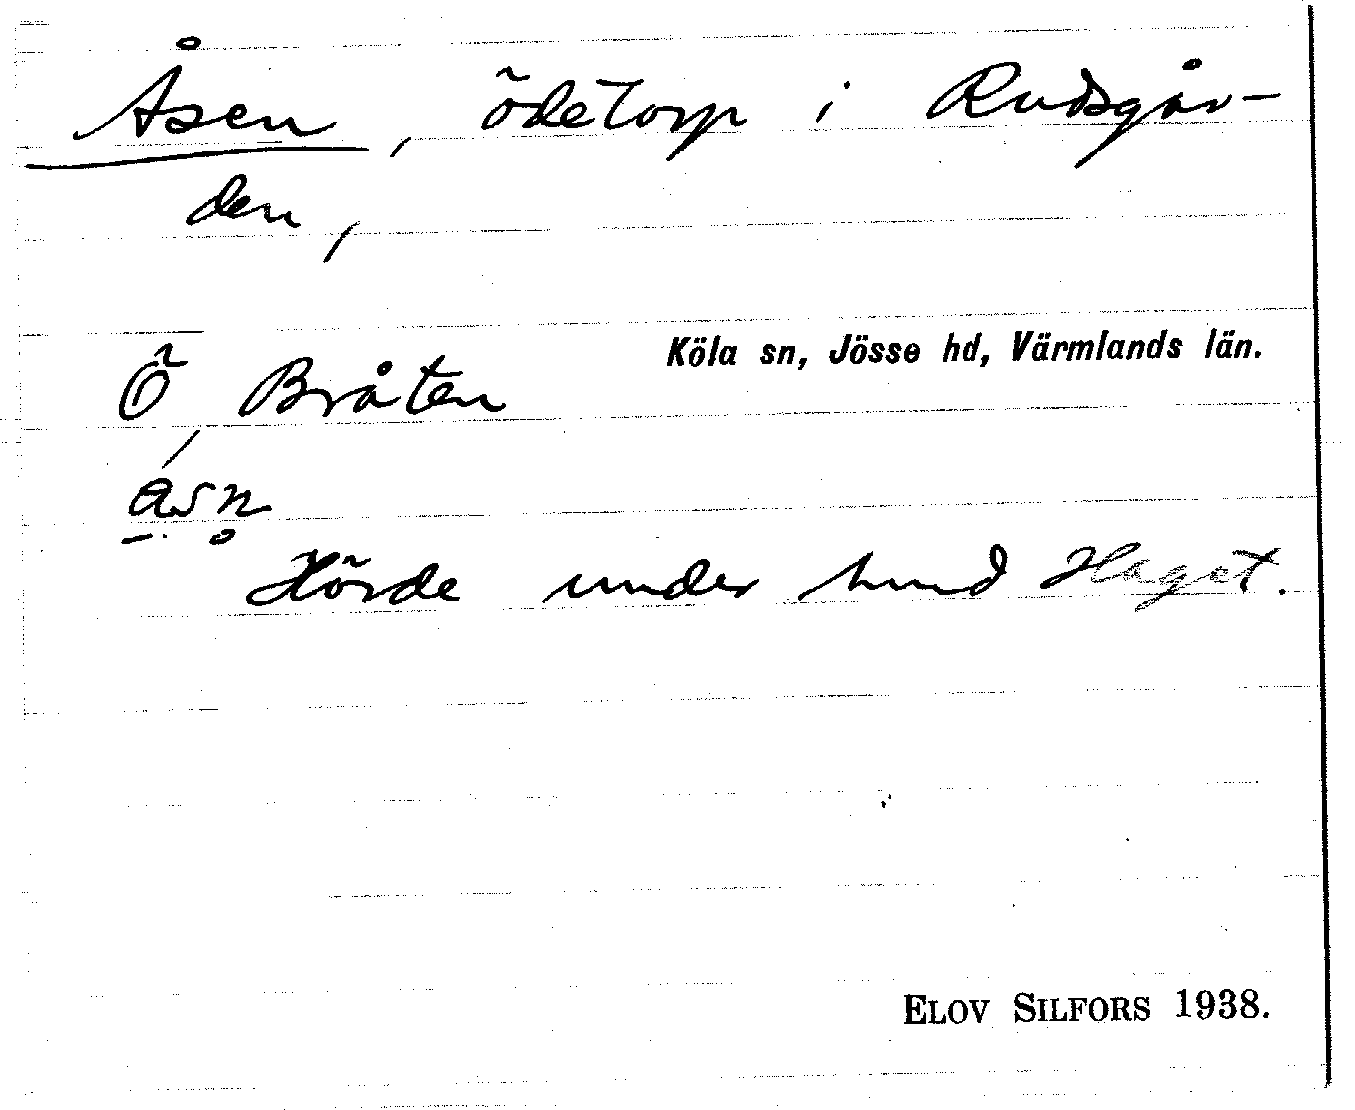 Åsen, ödetorp i Rudsgår-
den,
Köla sn, Jösse hd, Värmlands län.
Ö Bråten
åsn̥
Hörde under hmd Haget.
ELOV SILFORS 1938.